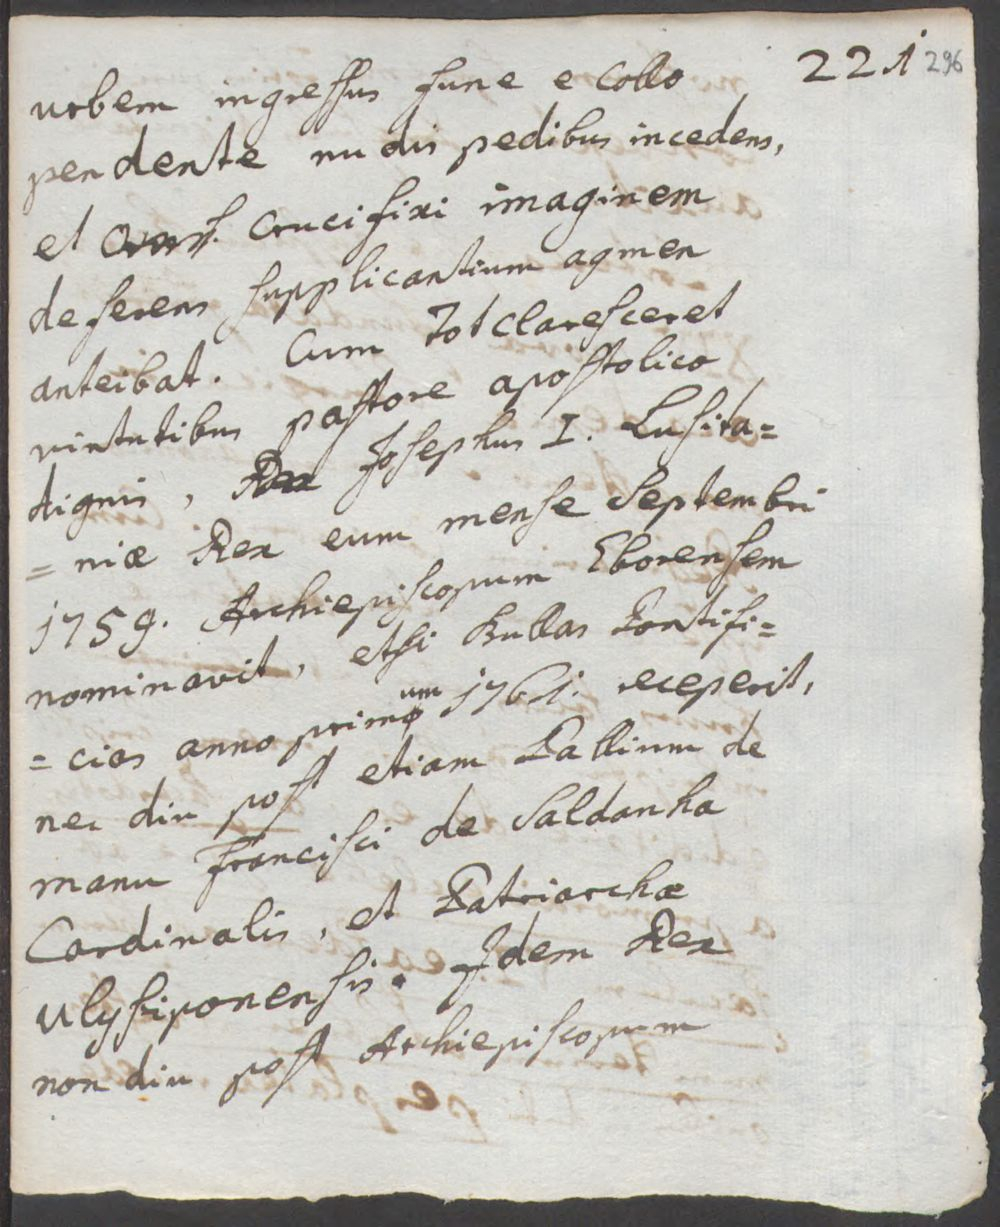 221 296
urbem ingressus fune e collo
pendente nudis pedibus incedens,
et Crucifixi imaginem
deferens supplicantium agmen
anteibat. Cum tot claresceret
virtutibus pastore apostolico
dignis, Rex Josephus I. Lusita=
=niæ Rex eum mense Septembri
1759. Archiepiscopum Eborensem
nominavit, etsi Bullas Pontifi=
=cias anno primum 1761. receperit,
nec diu post etiam Pallium de
manu Francisci de Saldanha
Cardinalis, et Patriarchæ
Ulyssiponensis. Idem Rex
non diu post Archiepiscopum